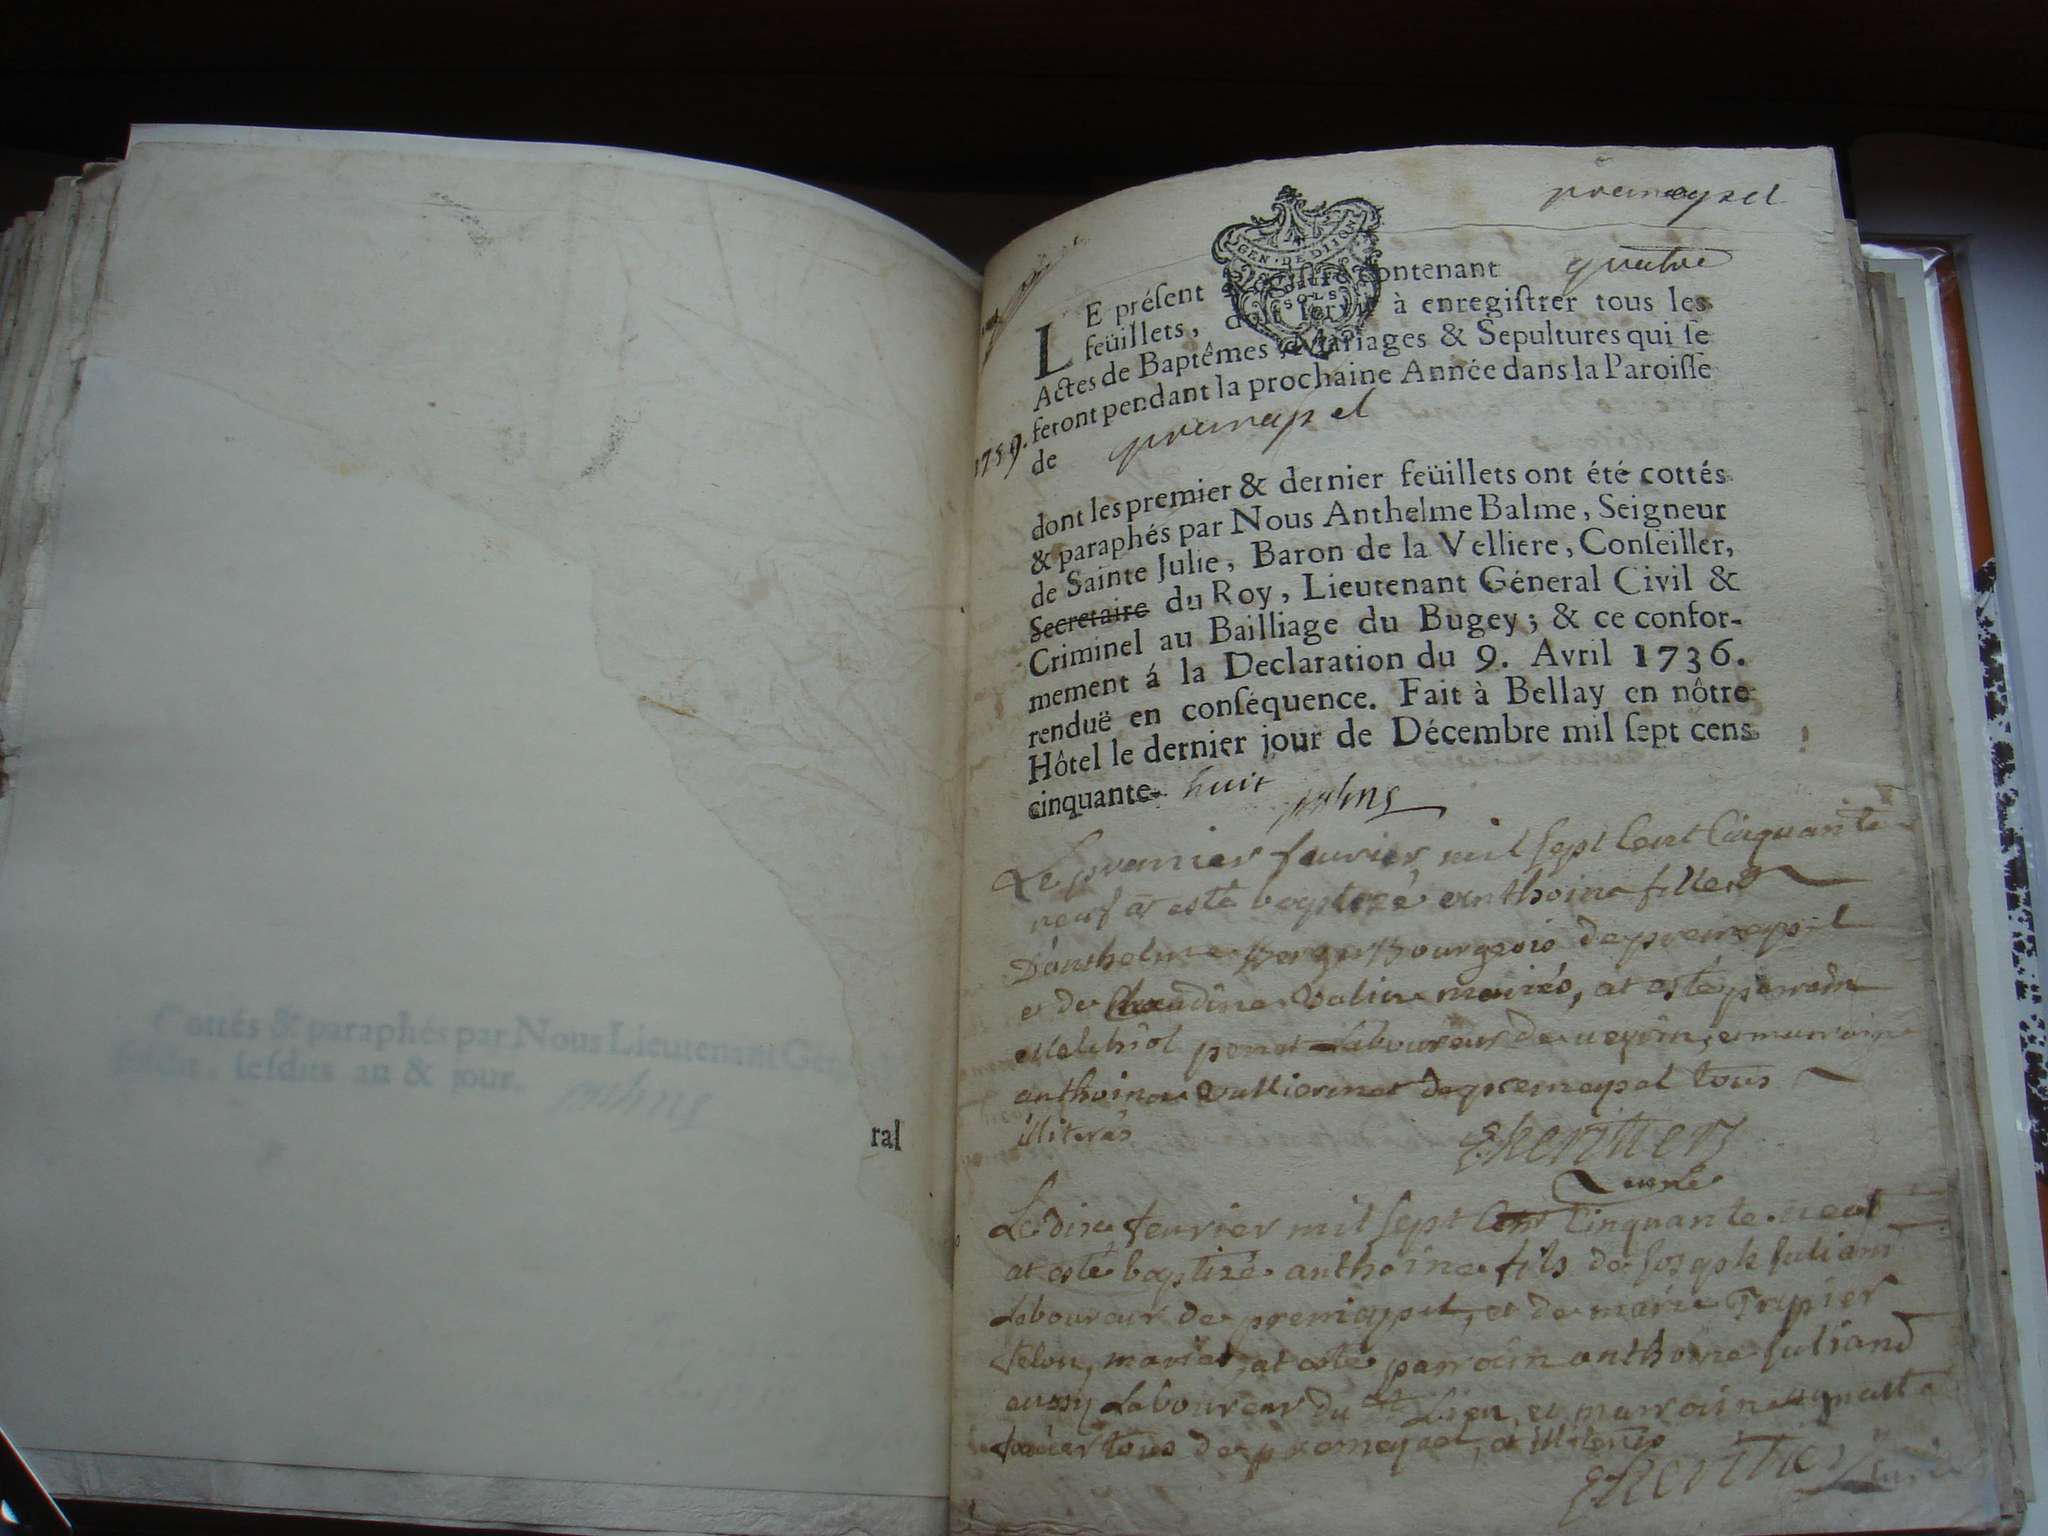 Cottés & paraphés par Nous Lieutenant Gen
susdit, lesdits an & jour.
ral
premeyzel
GEN. DE DIJON
SOLS
LE présent Registre contenant quatre
feüillets, doit servir à enregistrer tous les
Actes de Baptêmes, Mariages & Sepultures qui se
feront pendant la prochaine Année dans la Paroisse
1759.
de premeyzel
dont les premier & dernier feüillets ont été cottés
& paraphés par Nous Anthelme Balme, Seigneur
de Sainte Julie, Baron de la Velliere, Conseiller,
Secretaire du Roy, Lieutenant Géneral Civil &
Criminel au Bailliage du Bugey; & ce confor-
mement á la Declaration du 9. Avril 1736.
renduë en conséquence. Fait à Bellay en nôtre
Hôtel le dernier jour de Décembre mil sept cens
cinquante huit
Le premier feurier mil sept Cent Cinquante
neuf at esté baptizé anthoine fille
D'anthelme Berger Bourgeois de premeyzel
et de Claudine mariés, at esté parrain
melchiol Laboureur de ueyrin, et marraine
anthoina Vulliermet de premeyzel tous
illiterés
Curé
Le dix feurier mil sept Cent Cinquante neuf
at esté baptizé anthoine fils de Joseph Juliand
Laboureur de premeyzel, et de marie
mariés, at esté parrain anthoine Juliand
aussy Laboureur du dt Lieu, et marraine
tous de premeyzel, et illiterés
Curé